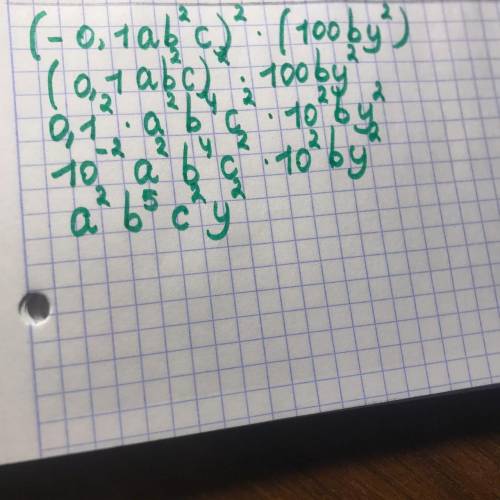 (-0,1ab²c)² · (100by²)
(0,1ab²c)² · 100by²
0,1² · a²b⁴c² · 10²by²
10⁻² a² b⁴ c² · 10² by²
a² b⁵ c² y²